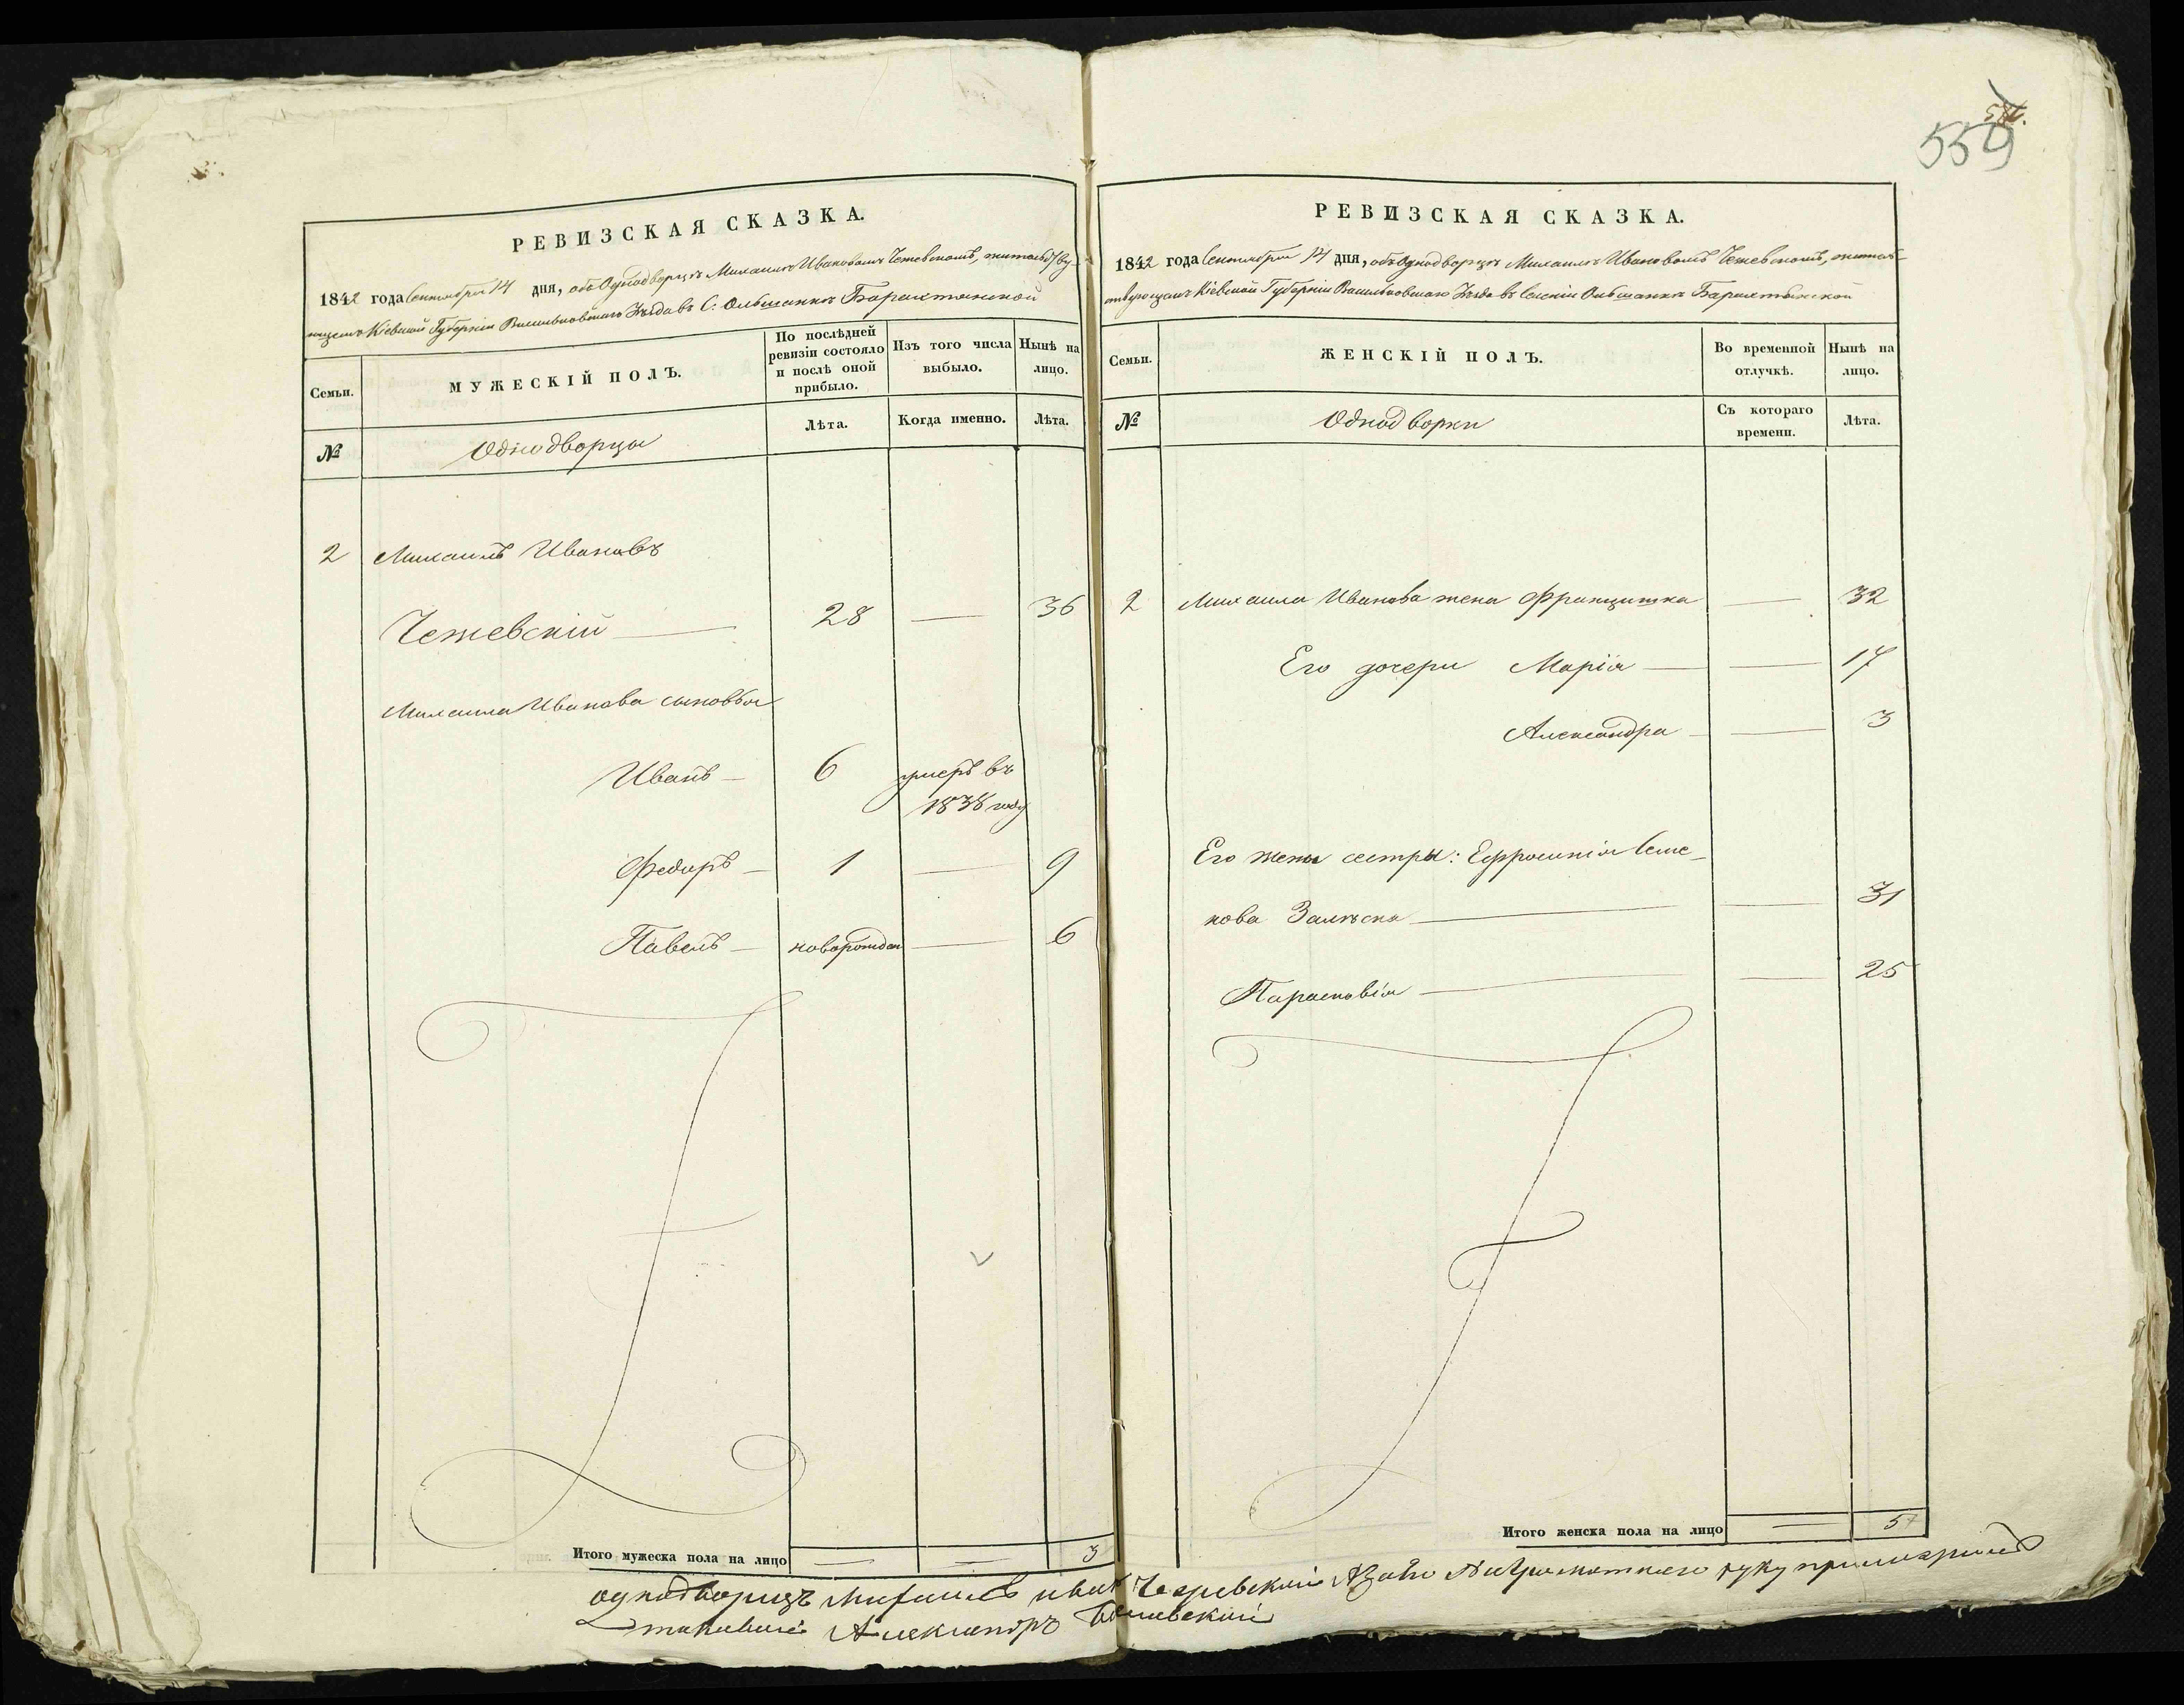 559
РЕВИЗСКАЯ СКАЗКА.
1842 года Сентября 14 дня, объ Однодворцѣ Михаилѣ Ивановомъ Чежевскомъ, жительству-
ющемъ Кіевской Губерніи Васильковскаго Уѣзда въ С: Ольшанкѣ Барахтянской
Семьи.
МУЖЕСКІЙ ПОЛЪ.
По послѣдней ревизіи состояло и послѣ оной прибыло.
Изъ того числа выбыло.
Нынѣ на лицо.
№
Однодворцы
Лѣта.
Когда именно.
Лѣта.
2 Михаилъ Ивановъ
Чежевскій — 28 — 36
Михаила Иванова сыновья
Иванъ — 6 умеръ въ
1838 году
Федоръ — 1 — 9
Павелъ — новорожден — 6
Итого мужеска пола на лицо — — 3
РЕВИЗСКАЯ СКАЗКА.
1842 года Сентября 14 дня, объ Однодворцѣ Михаилѣ Ивановомъ Чежевскомъ, жительс-
твующемъ Кіевской Губерніи Васильковскаго Уѣзда въ Селеніи Ольшанкѣ Барахтянской
Семьи.
ЖЕНСКІЙ ПОЛЪ.
Во временной отлучкѣ.
Нынѣ на лицо.
№
Однодворки
Съ котораго времени.
Лѣта.
2 Михаила Иванова жена Францишка — 32
Его дочери Марія — — 17
Александра — — 3
Его жены сестры: Ефросинія Семе-
нова — — 31
Парасковія — — 25
Итого женска пола на лицо — 5
однодворецъ Михаилъ Иван Чежевскій А за него Неграмотнаго руку приложилъ
Александръ